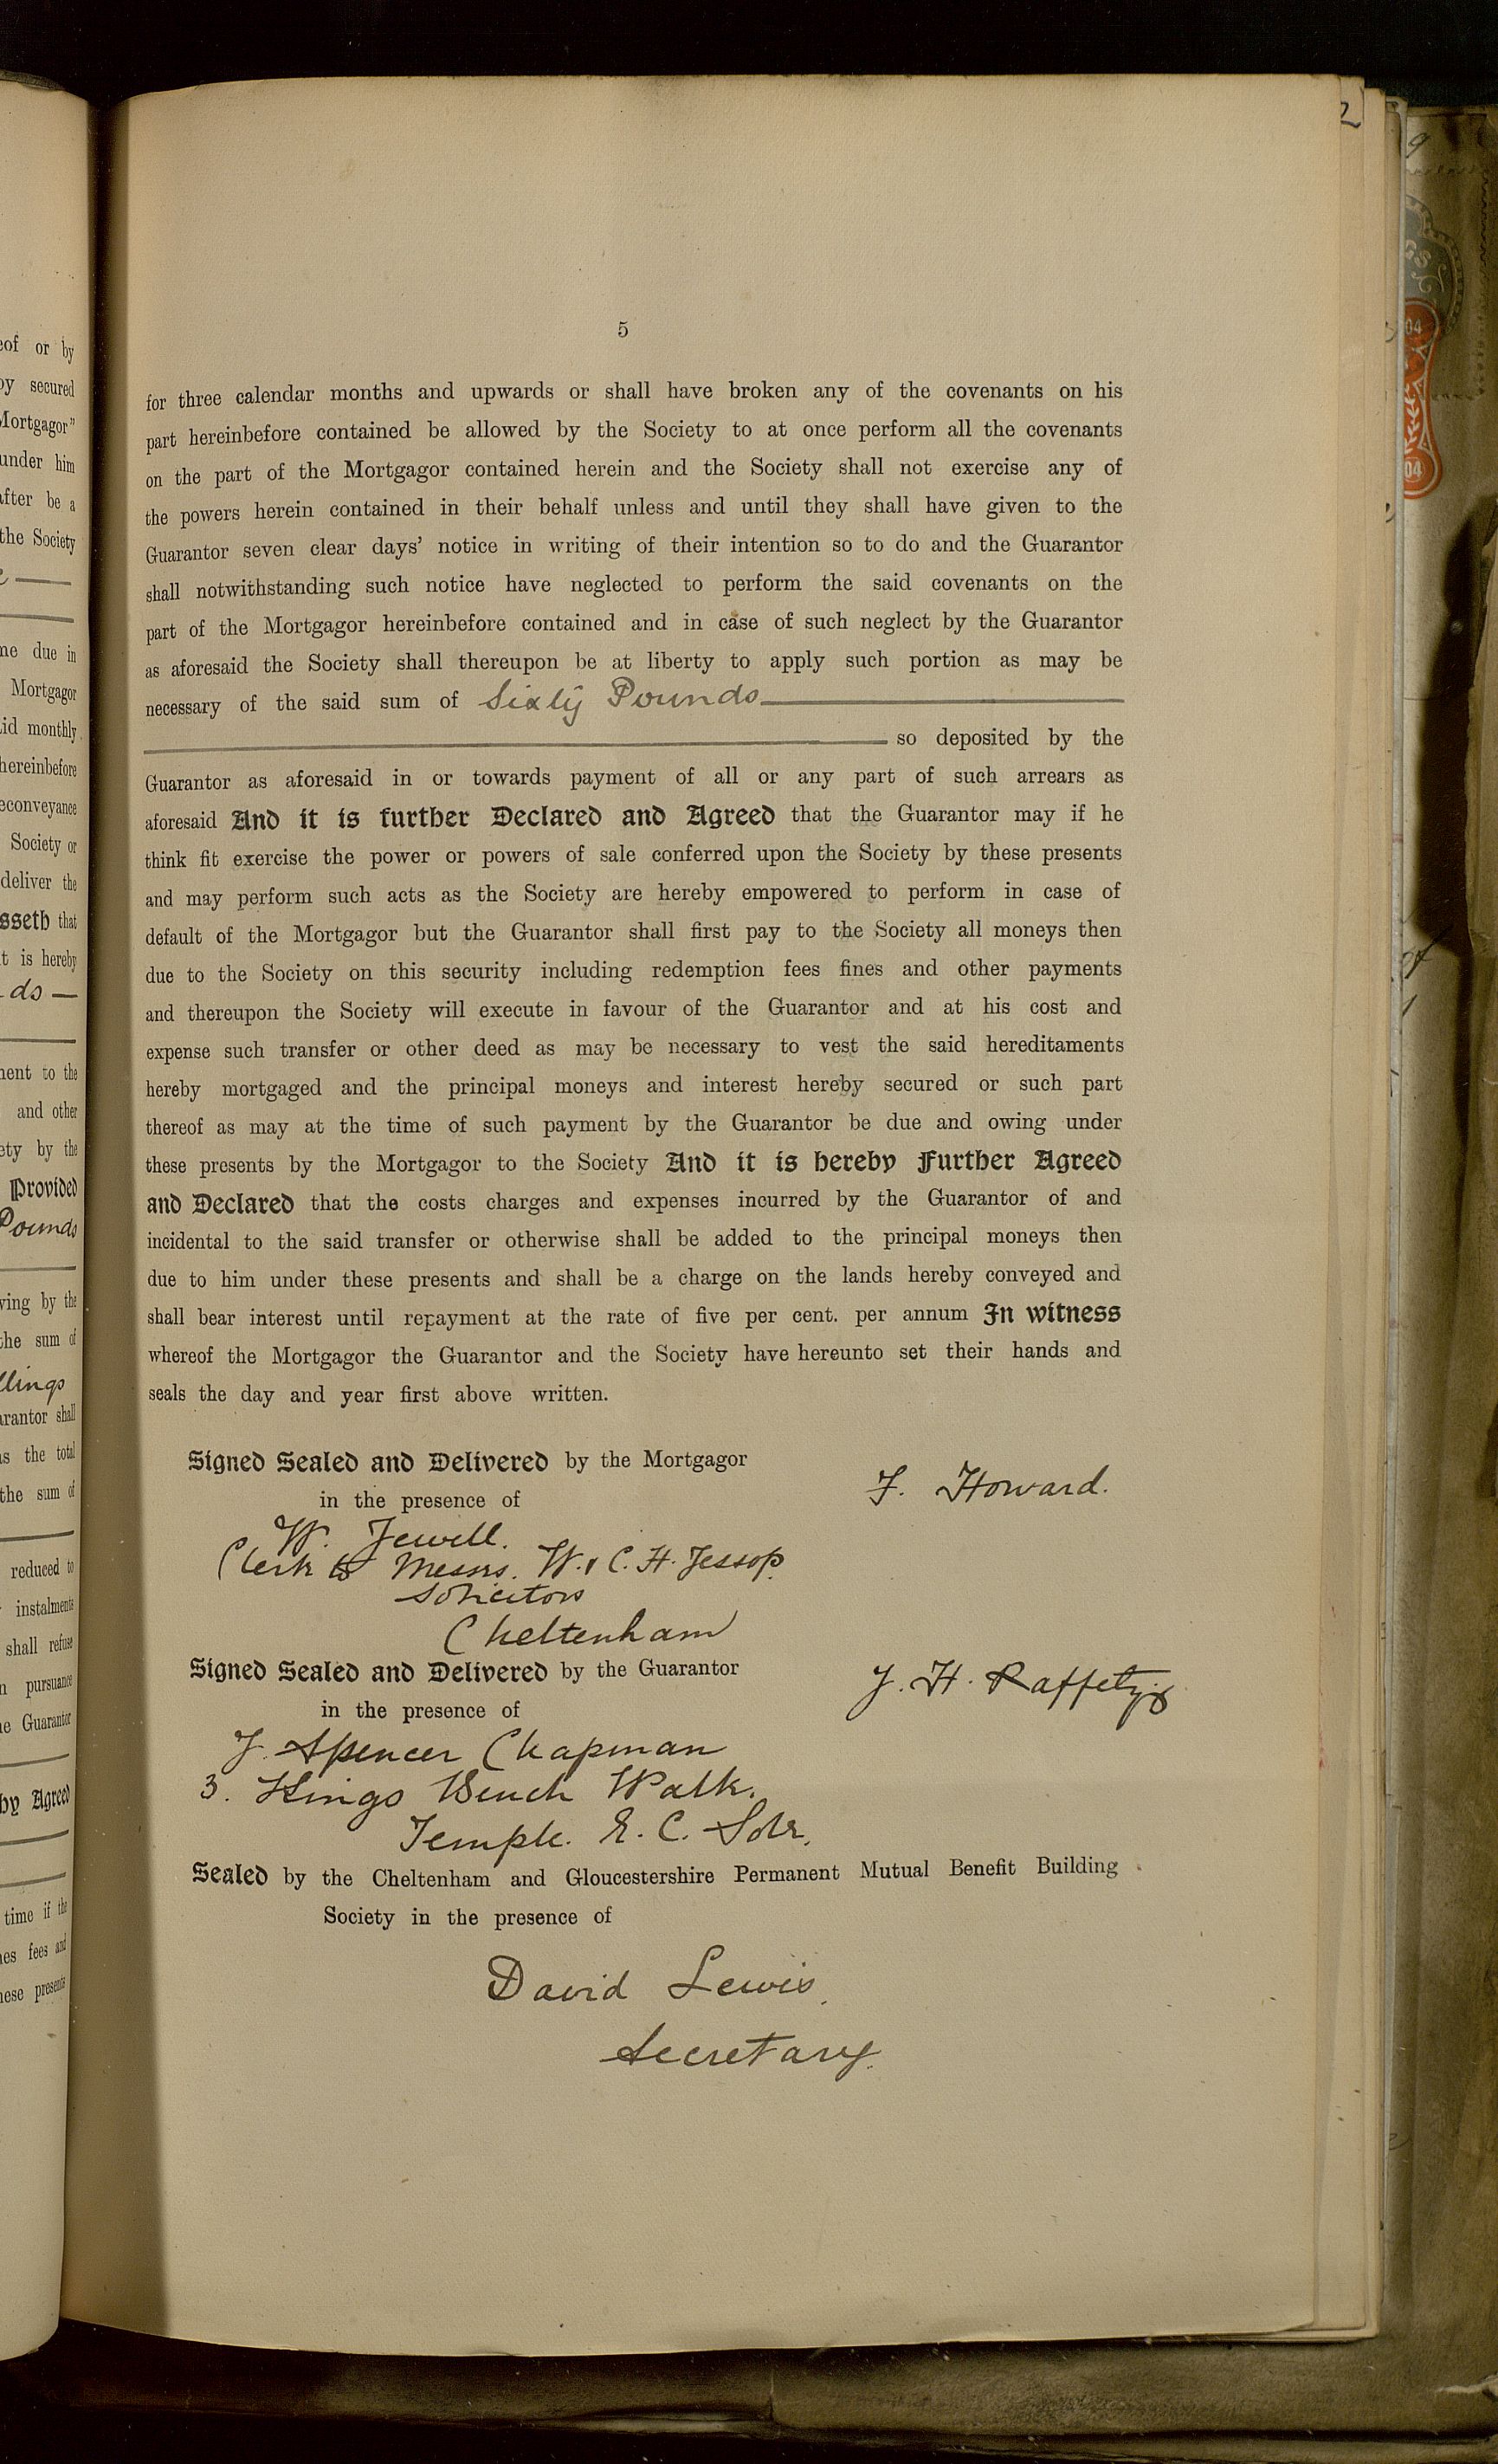 5
for three calendar months and upwards or shall have broken any of the covenants on his
part hereinbefore contained be allowed by the Society to at once perform all the covenants
on the part of the Mortgagor contained herein and the Society shall not exercise any of
the powers herein contained in their behalf unless and until they shall have given to the
Guarantor seven clear days' notice in writing of their intention so to do and the Guarantor
shall notwithstanding such notice have neglected to perform the said covenants on the
part of the Mortgagor hereinbefore contained and in case of such neglect by the Guarantor
as aforesaid the Society shall thereupon be at liberty to apply such portion as may be
necessary of the said sum of Sixty Pounds
so deposited by the
Guarantor as aforesaid in or towards payment of all or any part of such arrears as
aforesaid And it is further Declared and Agreed that the Guarantor may if he
think fit exercise the power or powers of sale conferred upon the Society by these presents
and may perform such acts as the Society are hereby empowered to perform in case of
default of the Mortgagor but the Guarantor shall first pay to the Society all moneys then
due to the Society on this security including redemption fees fines and other payments
and thereupon the Society will execute in favour of the Guarantor and at his cost and
expense such transfer or other deed as may be necessary to vest the said hereditaments
hereby mortgaged and the principal moneys and interest hereby secured or such part
thereof as may at the time of such payment by the Guarantor be due and owing under
these presents by the Mortgagor to the Society And it is hereby Further Agreed
and Declared that the costs charges and expenses incurred by the Guarantor of and
incidental to the said transfer or otherwise shall be added to the principal moneys then
due to him under these presents and shall be a charge on the lands hereby conveyed and
shall bear interest until repayment at the rate of five per cent. per annum In witness
whereof the Mortgagor the Guarantor and the Society have hereunto set their hands and
seals the day and year first above written.
Signed Sealed and Delivered by the Mortgagor
in the presence of
F. Howard.
W. Jewell.
Clerk to Messrs. W. & C. H. Jessop
Solicitors
Cheltenham
Signed Sealed and Delivered by the Guarantor
in the presence of
J. H. Raffety
J. Spencer Chapman
3. Kings Bench Walk.
Temple. E. C. Solr.
Sealed by the Cheltenham and Gloucestershire Permanent Mutual Benefit Building
Society in the presence of
David Lewis
Secretary.